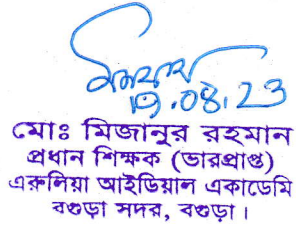 19.08.23
মোঃ মিজানুর রহমান
প্রধান শিক্ষক (ভারপ্রাপ্ত)
এরুলিয়া আইডিয়াল একাডেমি
বগুড়া সদর, বগুড়া।